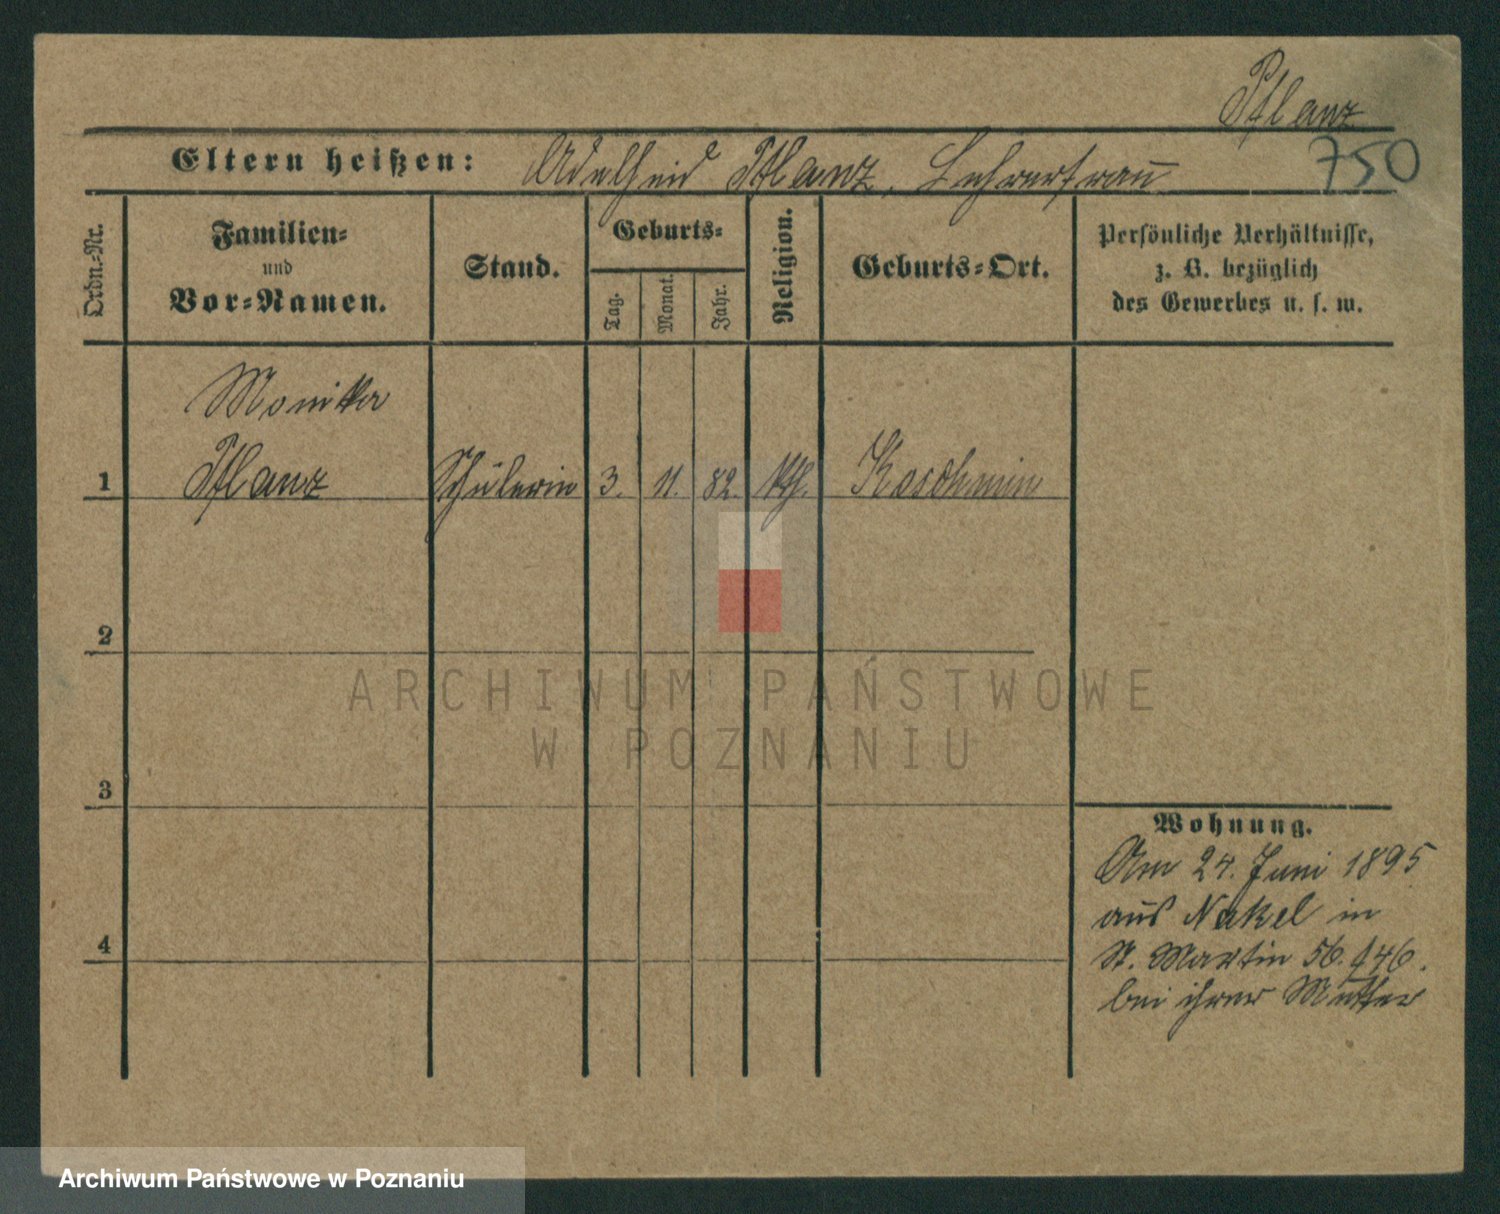 Pflanz
Eltern heißen: Adelheid Pflanz, Lehrerfrau 750
Ordn.-Nr.
Familien-
und
Vor-Namen.
Stand.
Geburts-
Tag.
Monat.
Jahr.
Religion.
Geburts-Ort.
Persönliche Verhältnisse,
z. B. bezüglich
des Gewerbes u. s. w.
Monika
1 Pflanz Schülerin 3. 11. 82. kth. Koschmin
2
3
4
Wohnung.
Am 24. Juni 1895
aus Nakel in
St. Martin 56.
bei ihrer Mutter
ARCHIWUM PAŃSTWOWE
W POZNANIU
Archiwum Państwowe w Poznaniu